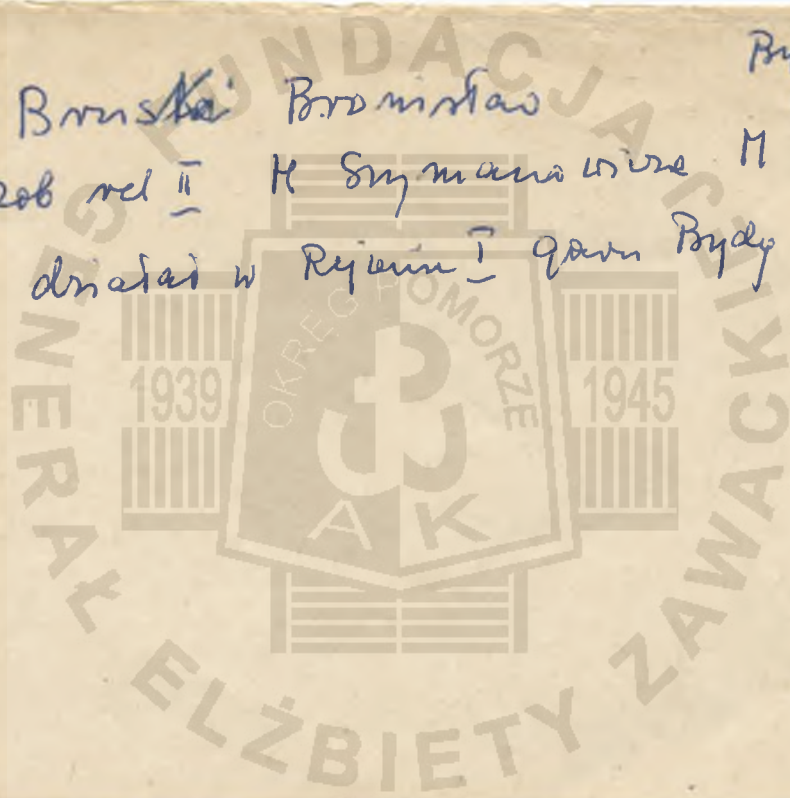 Bru
Bruski Bronisław
zob rel II M Szymanowicza M
działał w Rejonie I gdzu Bydg
FUNDACJA
GENERAŁ ELŻBIETY ZAWACKIEJ
OKRĘG POMORZE
1939
1945
AK